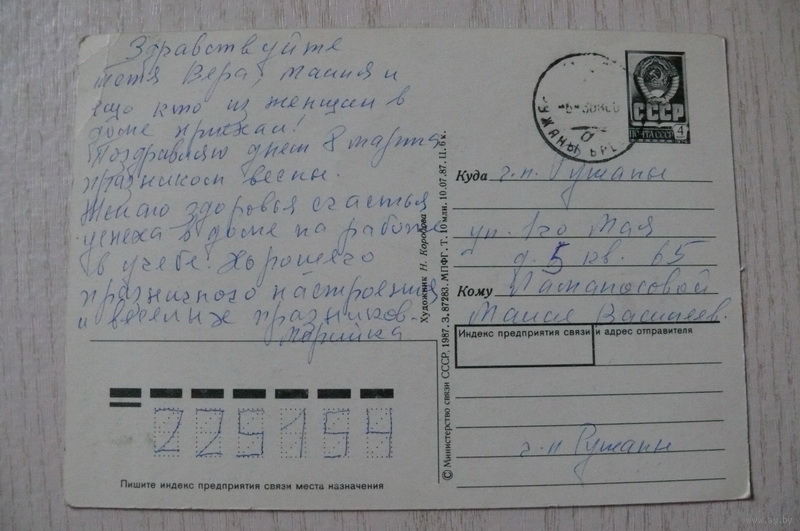 Здравствуйте
тетя Вера, Маися и
ещо кто из женщин в
доме приехал!
Поздравляю днем 8 марта
празником весны.
Желаю здоровья счастья
успеха в доме на работе
в учебе. Хорошего
празничного настроения
и веселых празников.
Марийка
СССР
ПОЧТА СССР 4
РУЖАНЫ БРЕ
Куда г.п. Ружаны
ул. 1го Мая
д. 5 кв. 65
Кому
Маисе Василев.
Индекс предприятия связи и адрес отправителя
г.п Ружаны
225154
Пишите индекс предприятия связи места назначения
Художник Н. Коробова
© Министерство связи СССР, 1987. З. 87283. МПФГ. Т. 10 млн. 10.07.87. Ц. 6 к.
www.ay.by